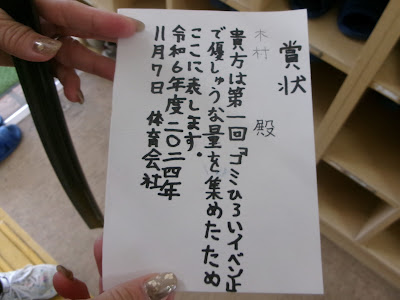 賞状
木村 殿
貴方は第一回『ゴミひろいイベント』
で優しゅうな量を集めたため
ここに表します.
令和6年度二〇二四年
11月7日 体育会社